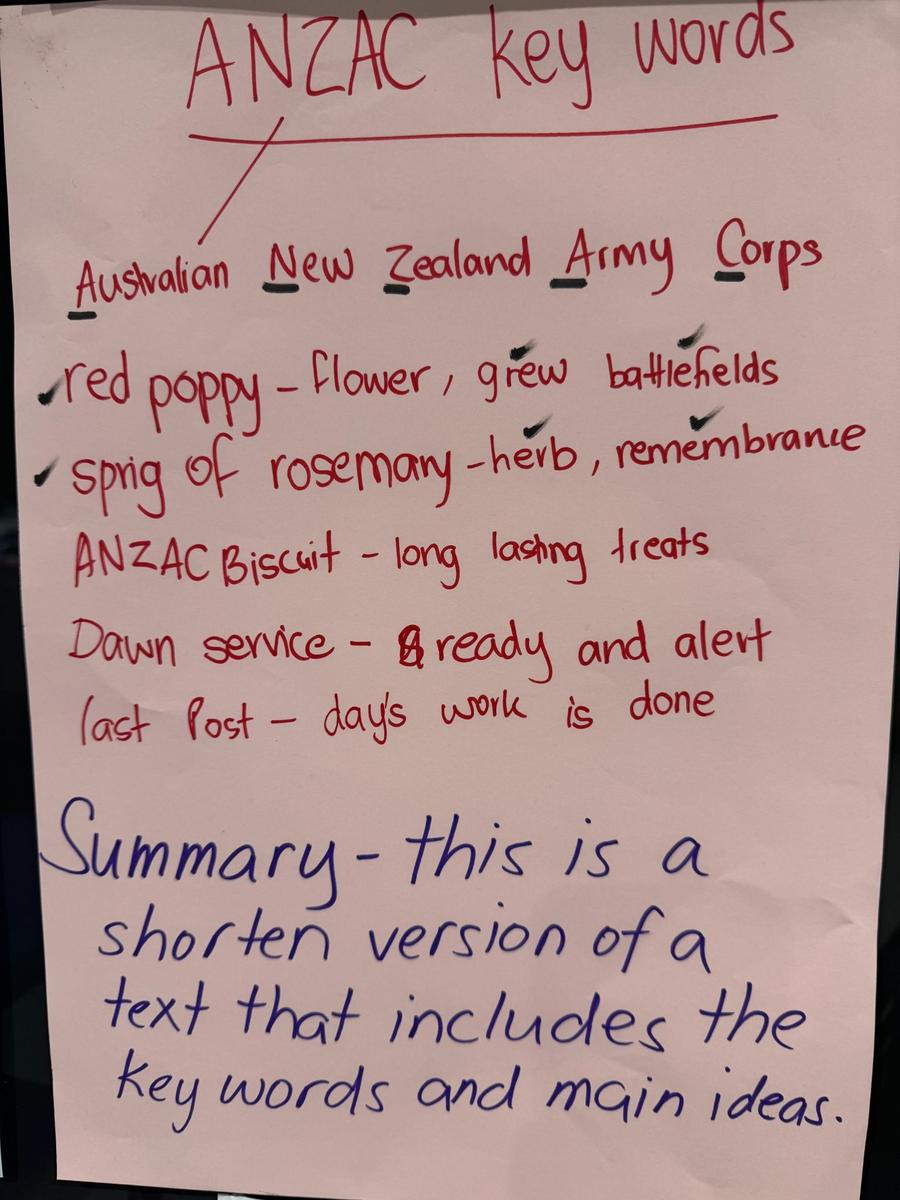 ANZAC key words
Australian New Zealand Army Corps
red poppy - flower, grew battlefields
sprig of rosemary - herb, remembrance
ANZAC Biscuit - long lasting treats
Dawn service - ready and alert
last Post - day's work is done
Summary - this is a
shorten version of a
text that includes the
key words and main ideas.